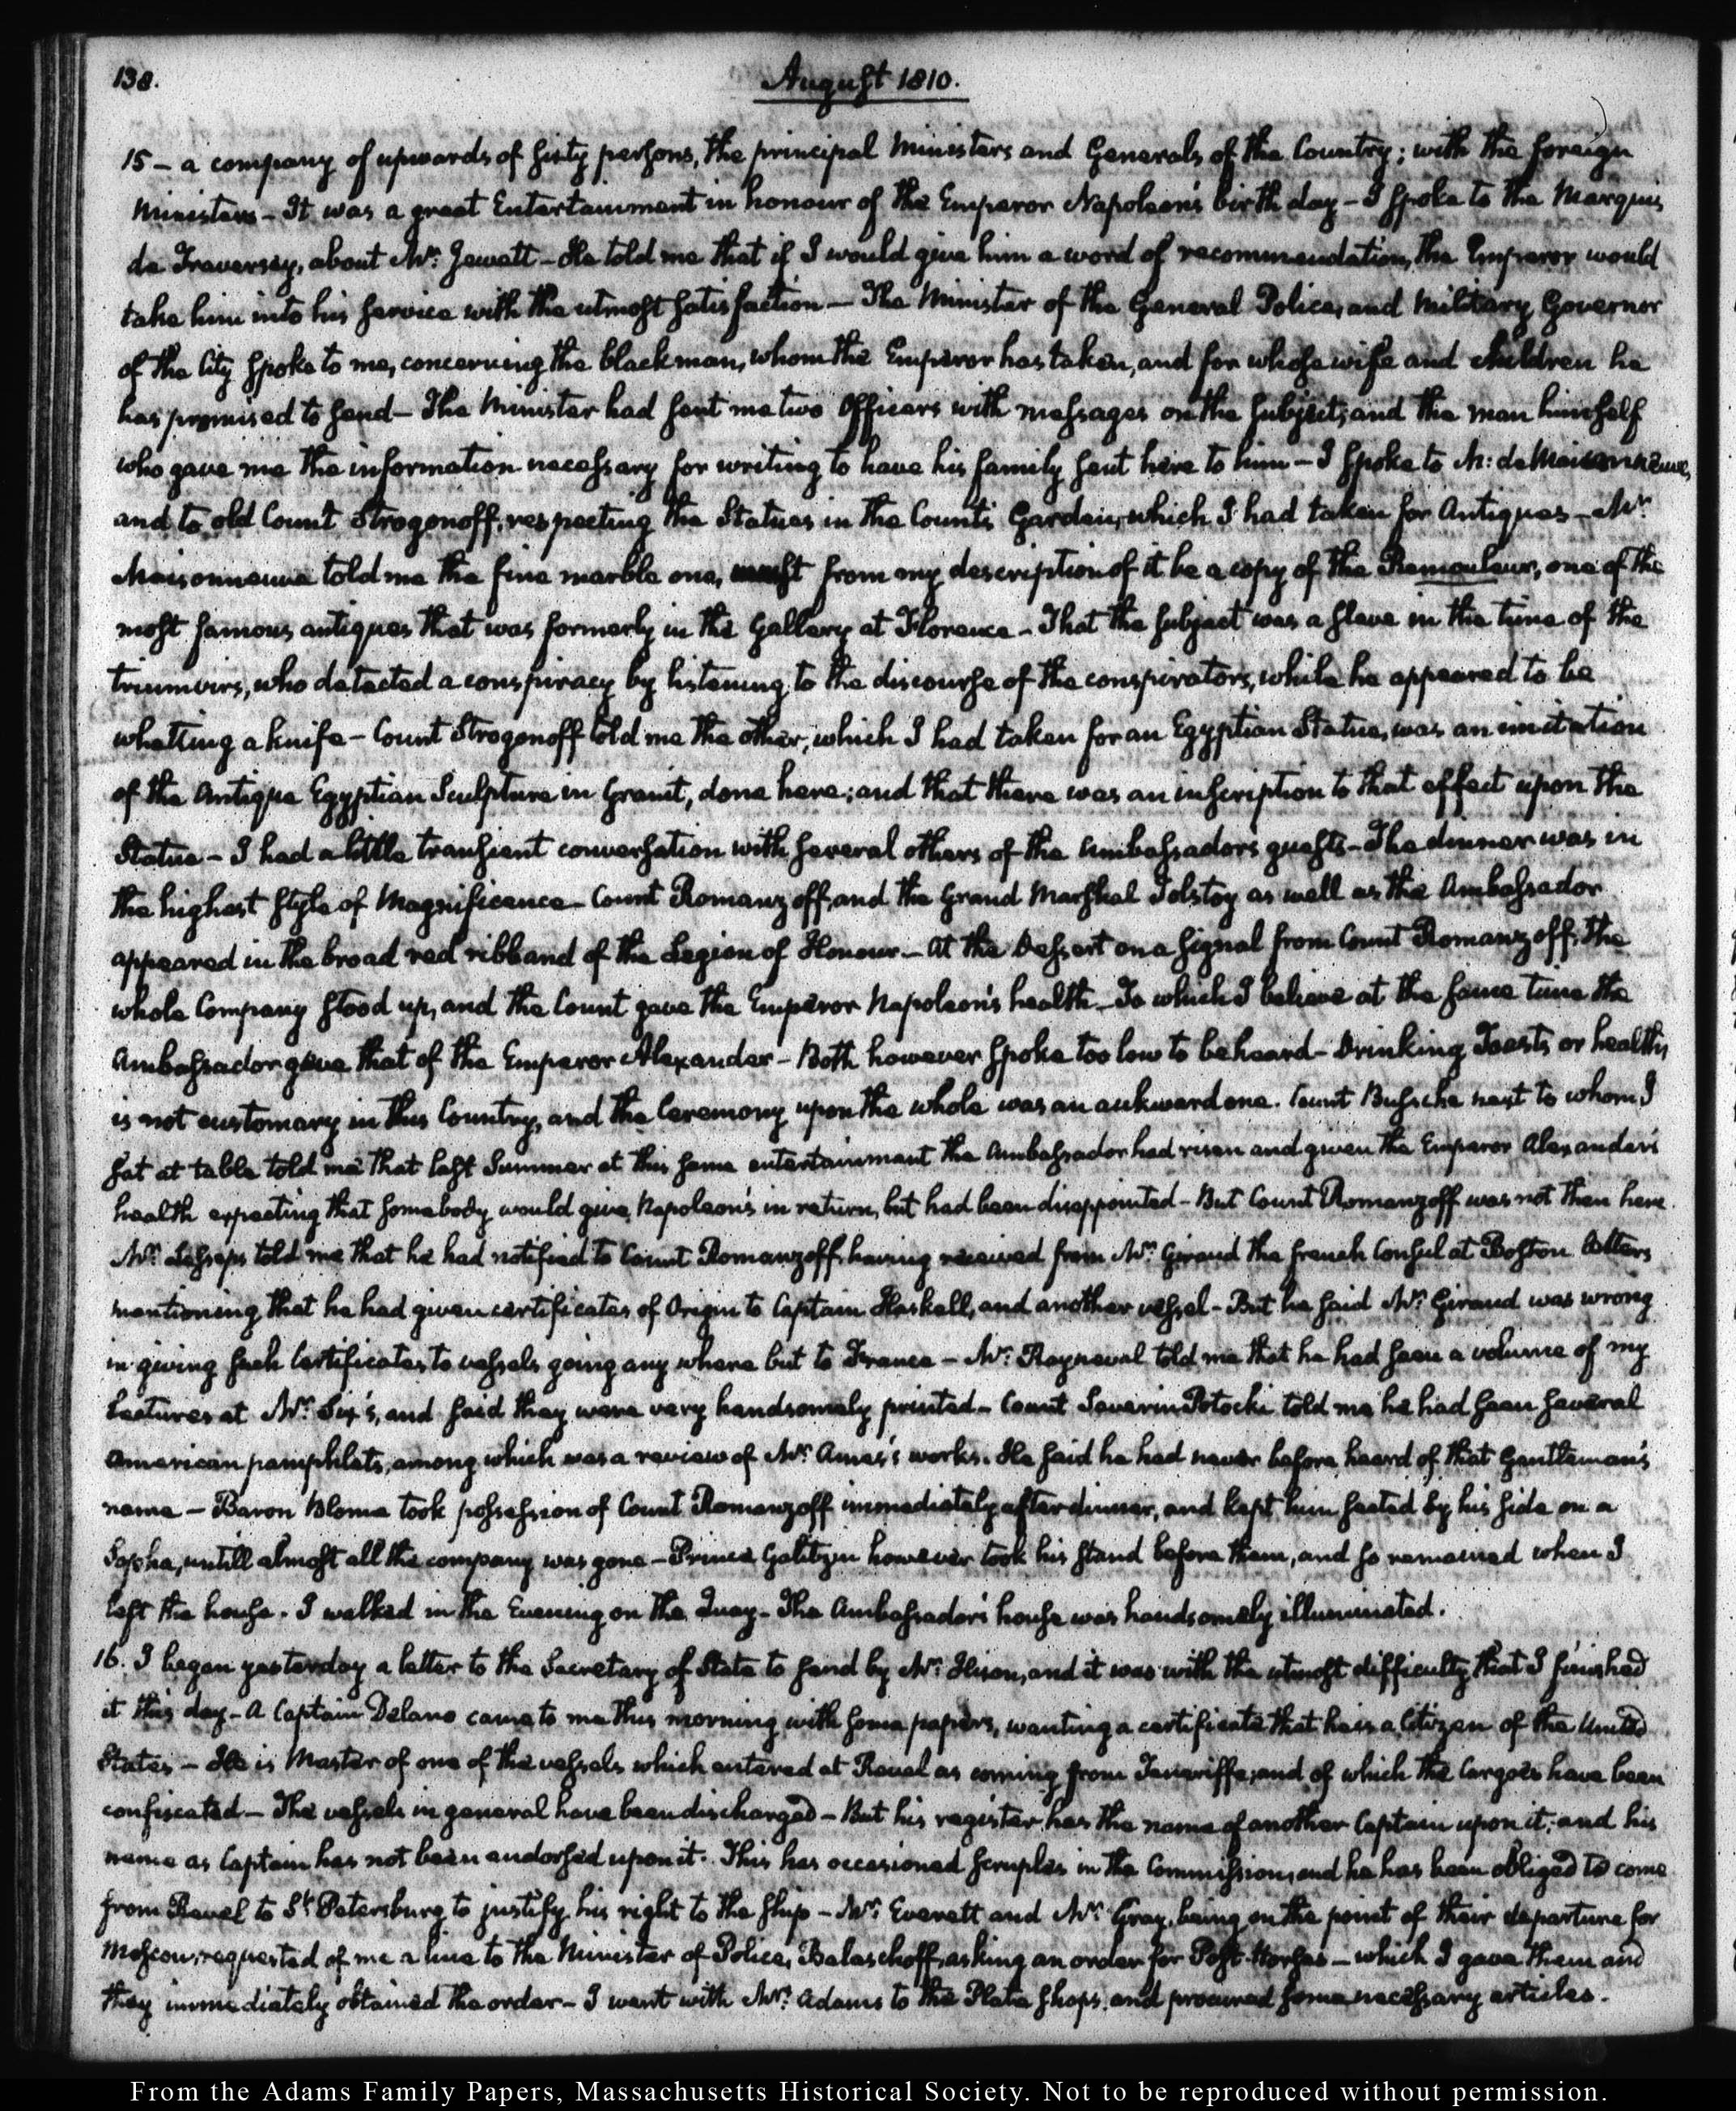 138.
August 1810.
15 – a company of upwards of sixty persons, the principal Ministers and Generals of the Country; with the foreign
Ministers – It was a great Entertainment in honour of the Emperor Napoleon's birth day – I spoke to the Marquis
de Traversey, about Mr: Jewett – He told me that if I would give him a word of recommendation, the Emperor would
take him into his service with the utmost satisfaction – The Minister of the General Police, and Military Governor
of the City spoke to me, concerning the black man, whom the Emperor has taken, and for whose wife and children he
has promised to send – The Minister had sent me two Officers with messages on the subject, and the man himself
who gave me the information necessary for writing to have his family sent here to him – I spoke to M: de Maisonneuve,
and to old Count Strogonoff, respecting the Statues in the Count's Garden, which I had taken for Antiques – Mr:
Maisonneuve told me the fine marble one, must from my description of it be a copy of the Remouleur, one of the
most famous antiques that was formerly in the Gallery at Florence – That the subject was a slave in the time of the
triumvirs, who detected a conspiracy by listening to the discourse of the conspirators, while he appeared to be
whetting a knife – Count Strogonoff told me the other, which I had taken for an Egyptian Statue, was an imitation
of the Antique Egyptian Sculpture in Granit, done here; and that there was an inscription to that effect upon the
Statue – I had a little transient conversation with several others of the Ambassador's guests – The dinner was in
the highest style of Magnificence – Count Romanzoff, and the Grand Marshal Tolstoy as well as the Ambassador
appeared in the broad red ribband of the Legion of Honour – At the Dessert on a signal from Count Romanzoff, the
whole Company stood up, and the Count gave the Emperor Napoleon's health – To which I believe at the same time the
Ambassador gave that of the Emperor Alexander – Both however spoke too low to be heard – Drinking Toasts or healths
is not customary in this Country, and the Ceremony upon the whole was an aukward one. Count Bussche next to whom I
sat at table told me that last Summer at this same entertainment the Ambassador had risen and given the Emperor Alexander's
health expecting that somebody would give Napoleon's in return, but had been disappointed – But Count Romanzoff was not then here.
Mr: Lesseps told me that he had notified to Count Romanzoff, having received from Mr: Giraud the french Consul at Boston letters
mentioning that he had given certificates of Origin to Captain Haskell, and another vessel – But he said Mr: Giraud was wrong
in giving such Certificates to vessels going any where but to France – Mr: Rayneval told me that he had seen a volume of my
Lectures at Mr: Six's, and said they were very handsomely printed – Count Severin Potocki told me he had seen several
American pamphlets, among which was a review of Mr: Ames's works. He said he had never before heard of that Gentleman's
name – Baron Blome took possession of Count Romanzoff immediately after dinner, and kept him seated by his side on a
Sopha, untill almost all the company was gone – Prince Galitzin however took his stand before them, and so remained when I
left the house. I walked in the Evening on the Quay – The Ambassador's house was handsomely illuminated.
16. I began yesterday a letter to the Secretary of State to send by Mr: Ilison, and it was with the utmost difficulty that I finished
it this day – A Captain Delano came to me this morning with some papers, wanting a certificate that he is a Citizen of the United
States – He is Master of one of the vessels which entered at Reval as coming from Teneriffe; and of which the Cargoes have been
confiscated – The vessels in general have been discharged – But his register has the name of another Captain upon it; and his
name as Captain has not been endorsed upon it. This has occasioned scruples in the Commission, and he has been obliged to come
from Revel to St Petersburg to justify his right to the ship – Mr: Everett and Mr: Gray, being on the point of their departure for
Moscow, requested of me a line to the Minister of Police, Balaschoff, asking an order for Post-Horses – which I gave them and
they immediately obtained the order – I went with Mrs: Adams to the Plate shops, and procured some necessary articles.
From the Adams Family Papers, Massachusetts Historical Society. Not to be reproduced without permission.